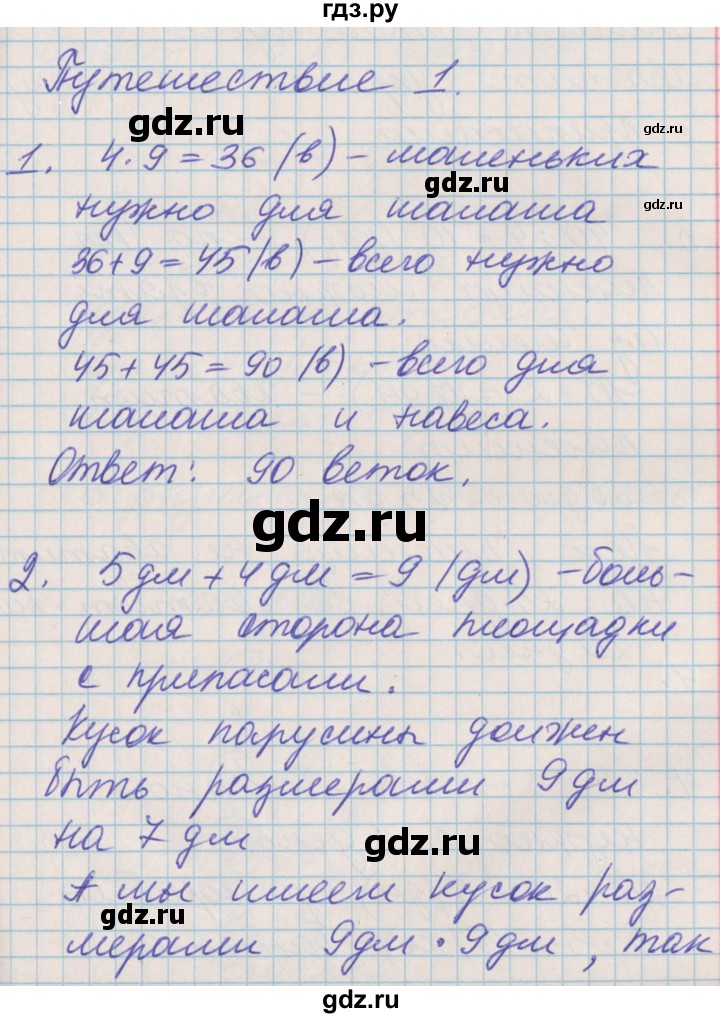 гдз.ру
Путешествие 1.
gdz.ru
1. 4·9=36 (в) – маленьких
gdz.ru
нужно для шалаша
gdz.ru
36+9=45 (в) – всего нужно
для шалаша.
45+45=90 (в) – всего для
шалаша и навеса.
Ответ: 90 веток.
gdz.ru
2. 5дм+4дм=9 (дм) – боль-
шая сторона площадки
с припасами.
Кусок парусины должен
быть размерами 9дм
на 7дм
gdz.ru
А мы имеем кусок раз-
gdz.ru
мерами 9дм·9дм, так
gdz.ru